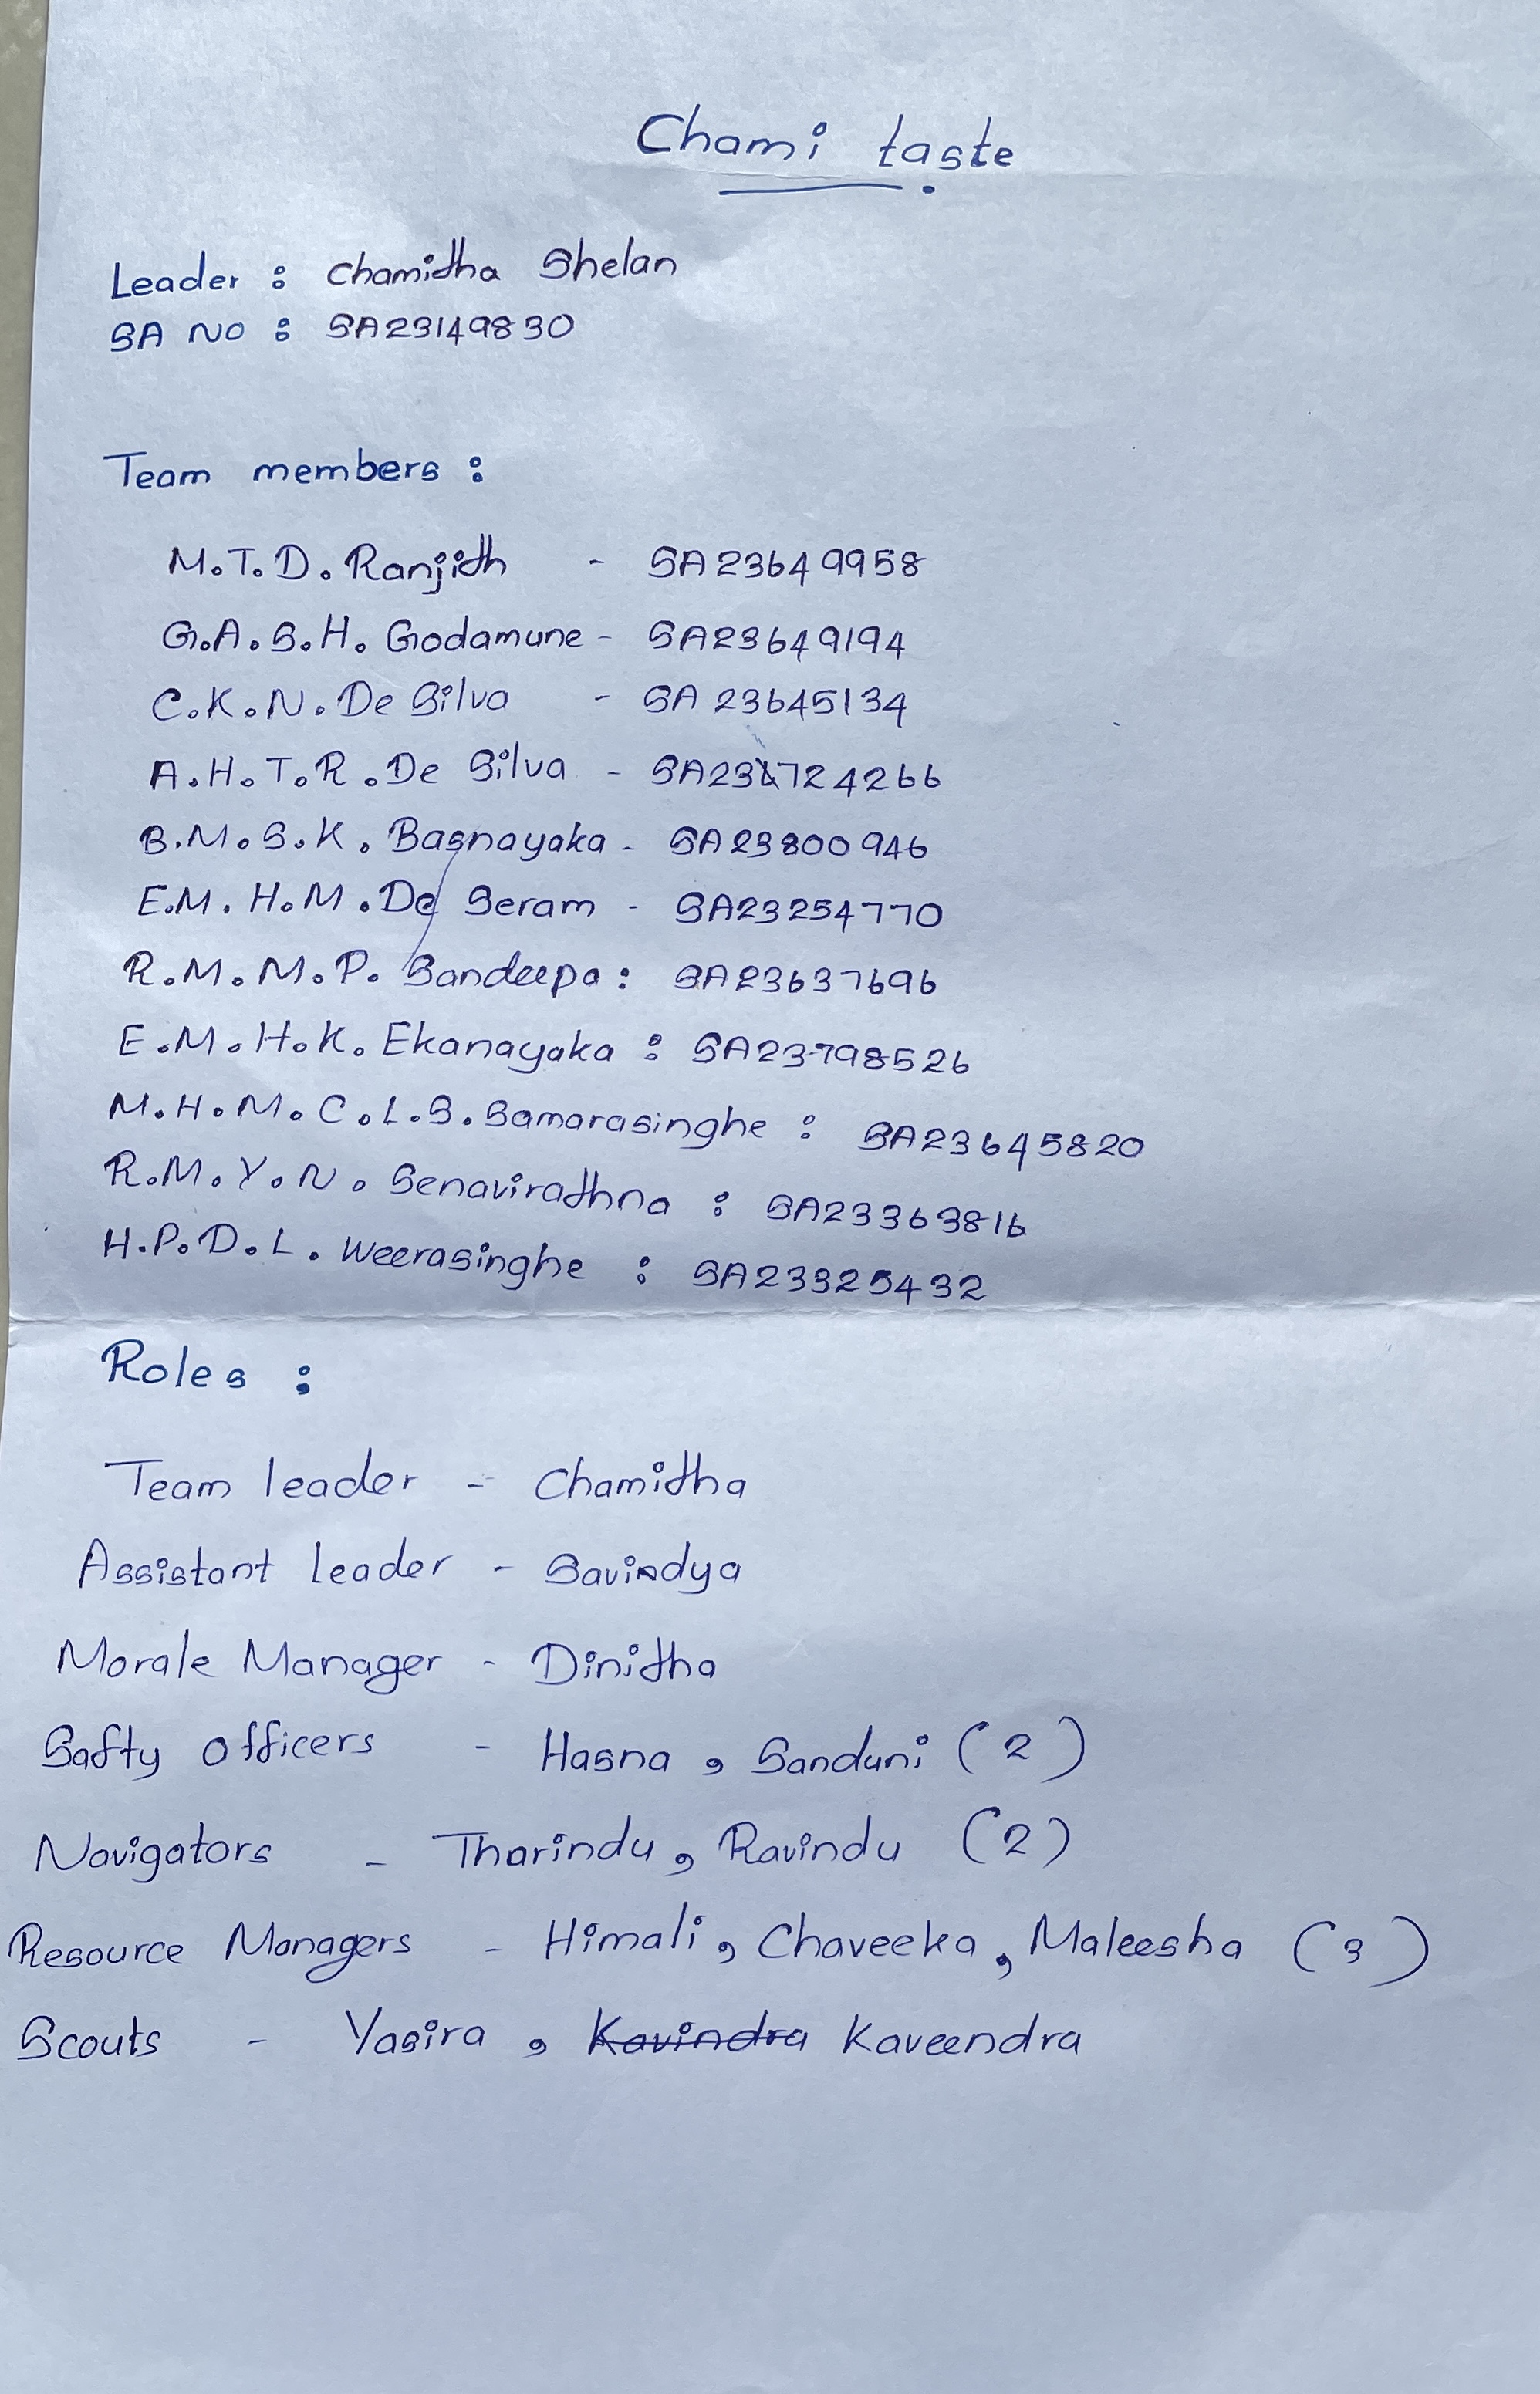 Chami taste
Leader : Chamitha Shelan
SA NO : SA23149830
Team members :
M.T.D. Ranjith - SA23649958
G.A.S.H. Godamune - SA23649194
C.K.N. De Silva - SA 23645134
A.H.T.R. De Silva - SA23724266
B.M.S.K. Basnayaka - SA23800946
E.M.H.M. De Seram - SA23254770
R.M.M.P. Sandeepa : SA23637696
E.M.H.K. Ekanayaka : SA23798526
M.H.M.C.L.S. Samarasinghe : SA23645820
R.M.Y.N. Senavirathna : SA23363816
H.P.D.L. Weerasinghe : SA23325432
Roles :
Team leader - Chamitha
Assistant leader - Savindya
Morale Manager - Dinitha
Safty officers - Hasna , Sanduni (2)
Navigators - Tharindu , Ravindu (2)
Resource Managers - Himali , Chaveeka , Maleesha (3)
Scouts - Yasira , Kavindra Kaveendra